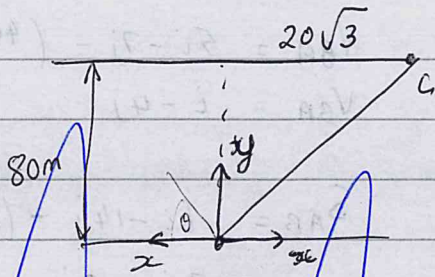 20√3
C
80m
y
θ
x
x